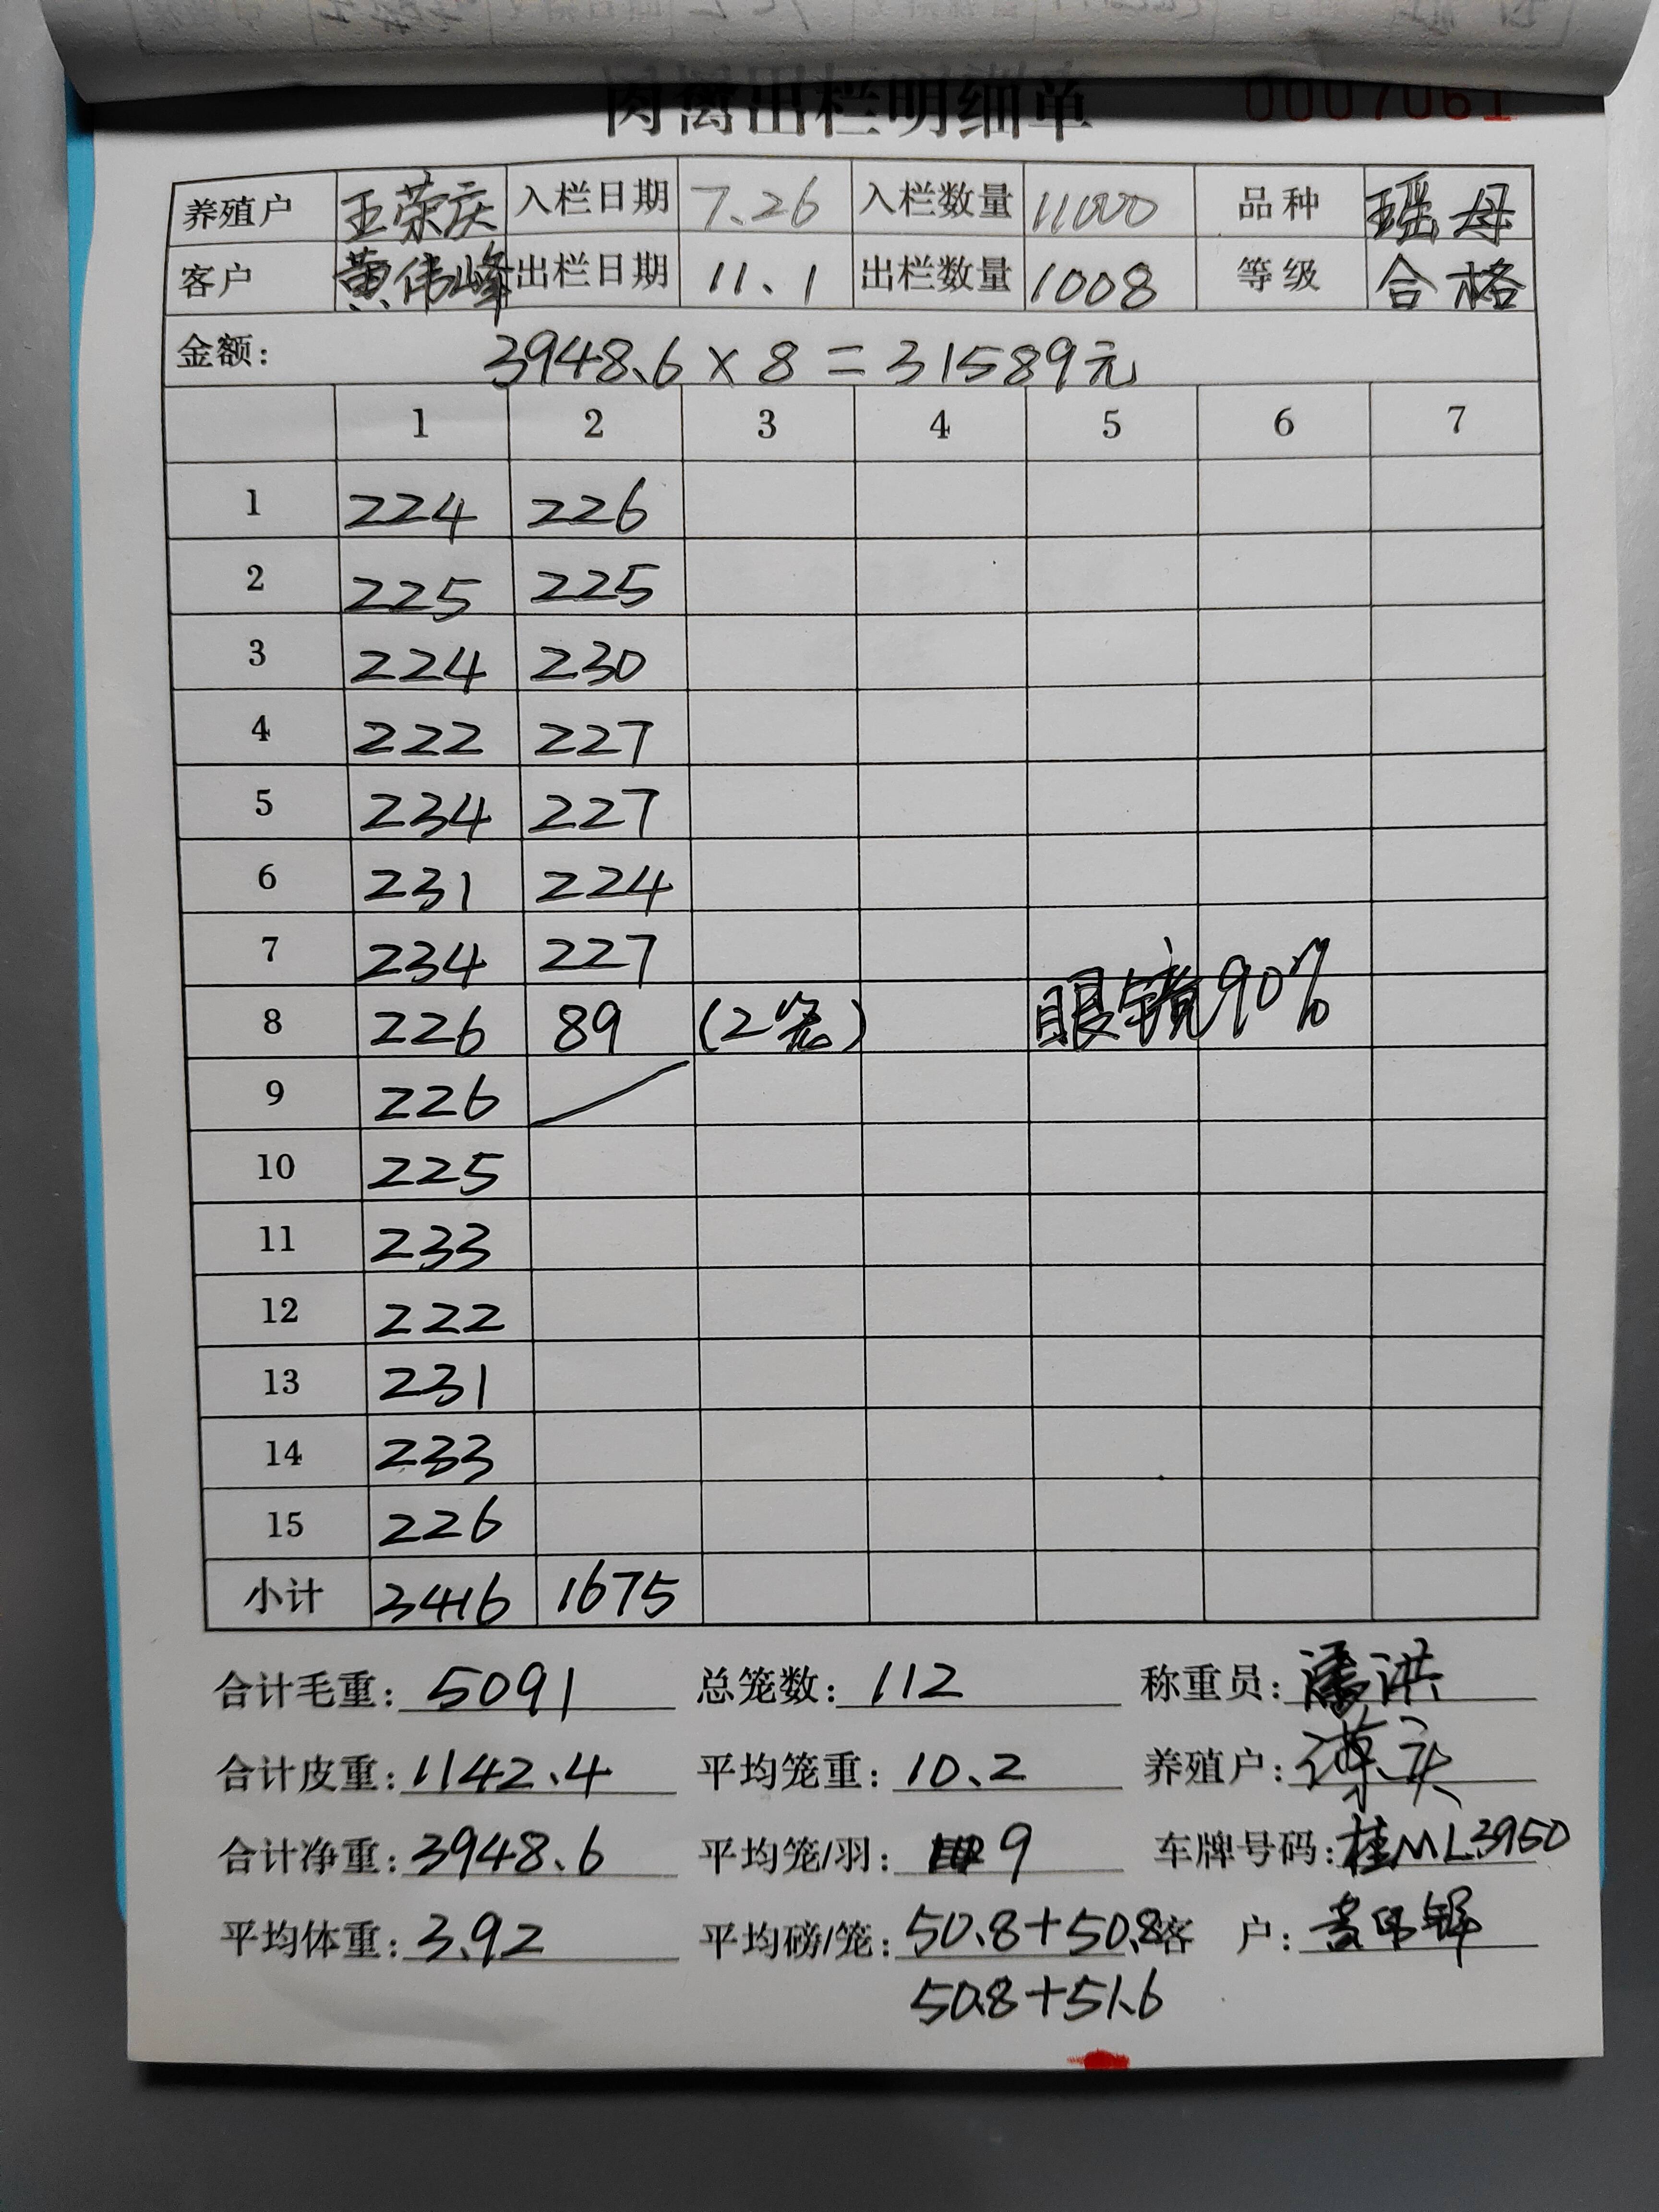 肉禽出栏明细单 0007061
养殖户 王荣庆 入栏日期 7.26 入栏数量 11000 品种 瑶母
客户 黄伟峰 出栏日期 11.1 出栏数量 1008 等级 合格
金额: 3948.6 × 8 = 31589元
1 2 3 4 5 6 7
1 224 226
2 225 225
3 224 230
4 222 227
5 234 227
6 231 224
7 234 227
8 226 89 (2笼) 眼镜90%
9 226
10 225
11 233
12 222
13 231
14 233
15 226
小计 3416 1675
合计毛重: 5091 总笼数: 112 称重员: 潘洪
合计皮重: 1142.4 平均笼重: 10.2 养殖户:
合计净重: 3948.6 平均笼/羽: 9 车牌号码: 桂ML3950
平均体重: 3.92 平均磅/笼: 50.8+50.8 客 户:
50.8+51.6